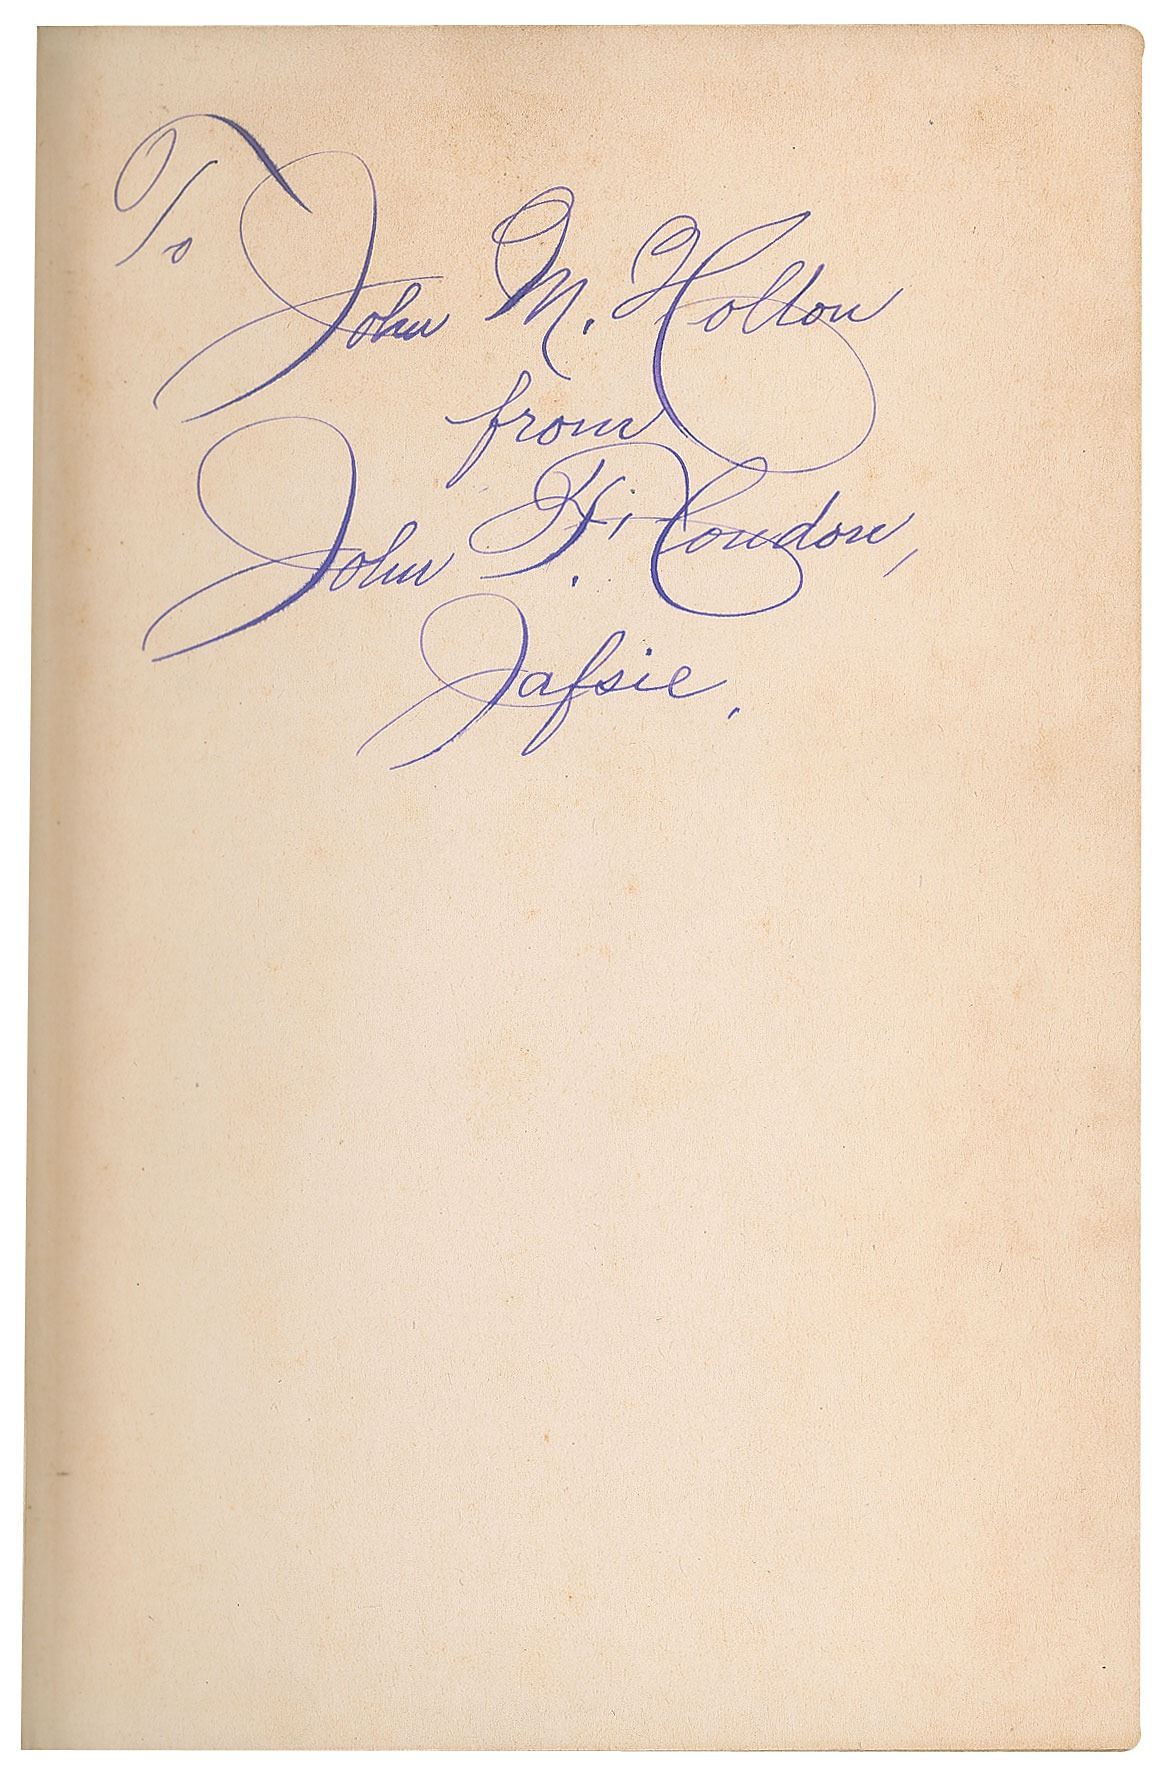 To
John M. Holton
from
John F. Condon,
Jafsie.